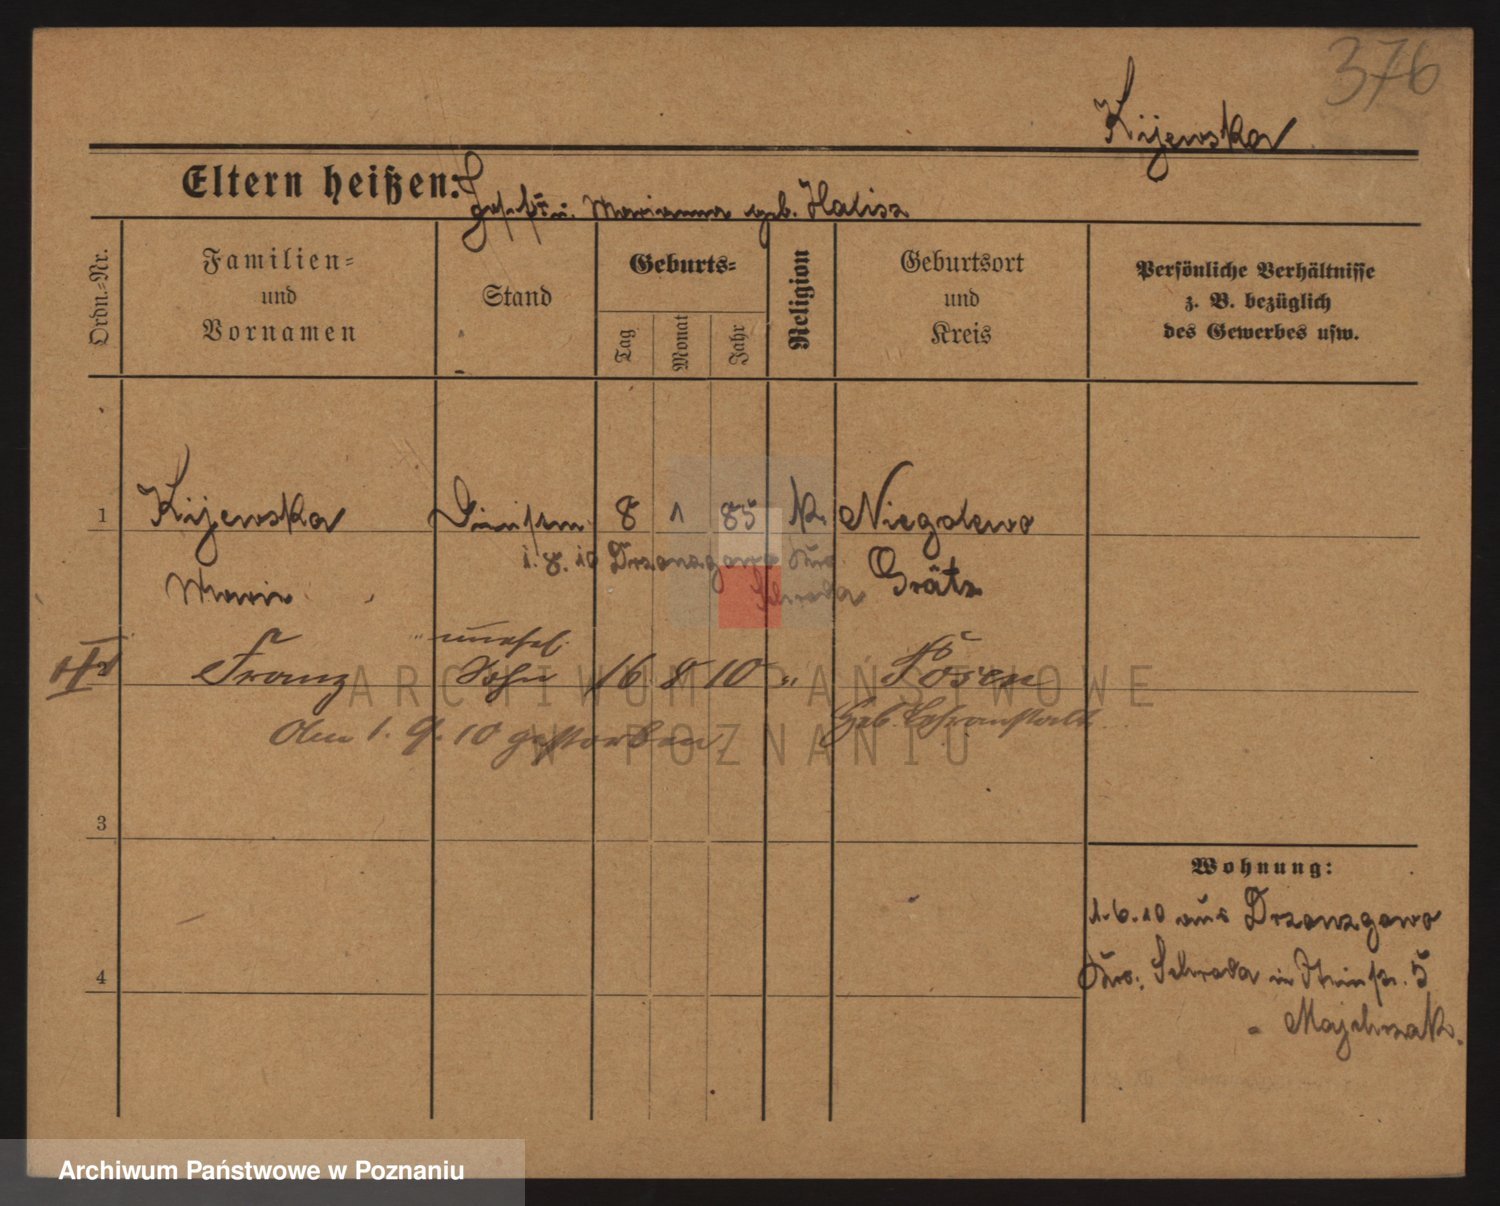 376
Kijewska
Eltern heißen: Josef u. Marianna geb. Halisz
Ordn.-Nr.
Familien-
und
Vornamen
Stand
Geburts-
Tag
Monat
Jahr
Religion
Geburtsort
und
Kreis
Persönliche Verhältnisse
z. B. bezüglich
des Gewerbes usw.
1 Kijewska 8 1 85 K. Niegolewo
1. 8. 10
Schroda Grätz
Marie
unehel.
Franz Sohn 16 8 10 " Posen
Geb.
Den 1. 9. 10 gestorben
3
Wohnung:
1. 6. 10 aus
Schroda in 5
4
Majchrzak.
ARCHIWUM PAŃSTWOWE
W POZNANIU
Archiwum Państwowe w Poznaniu